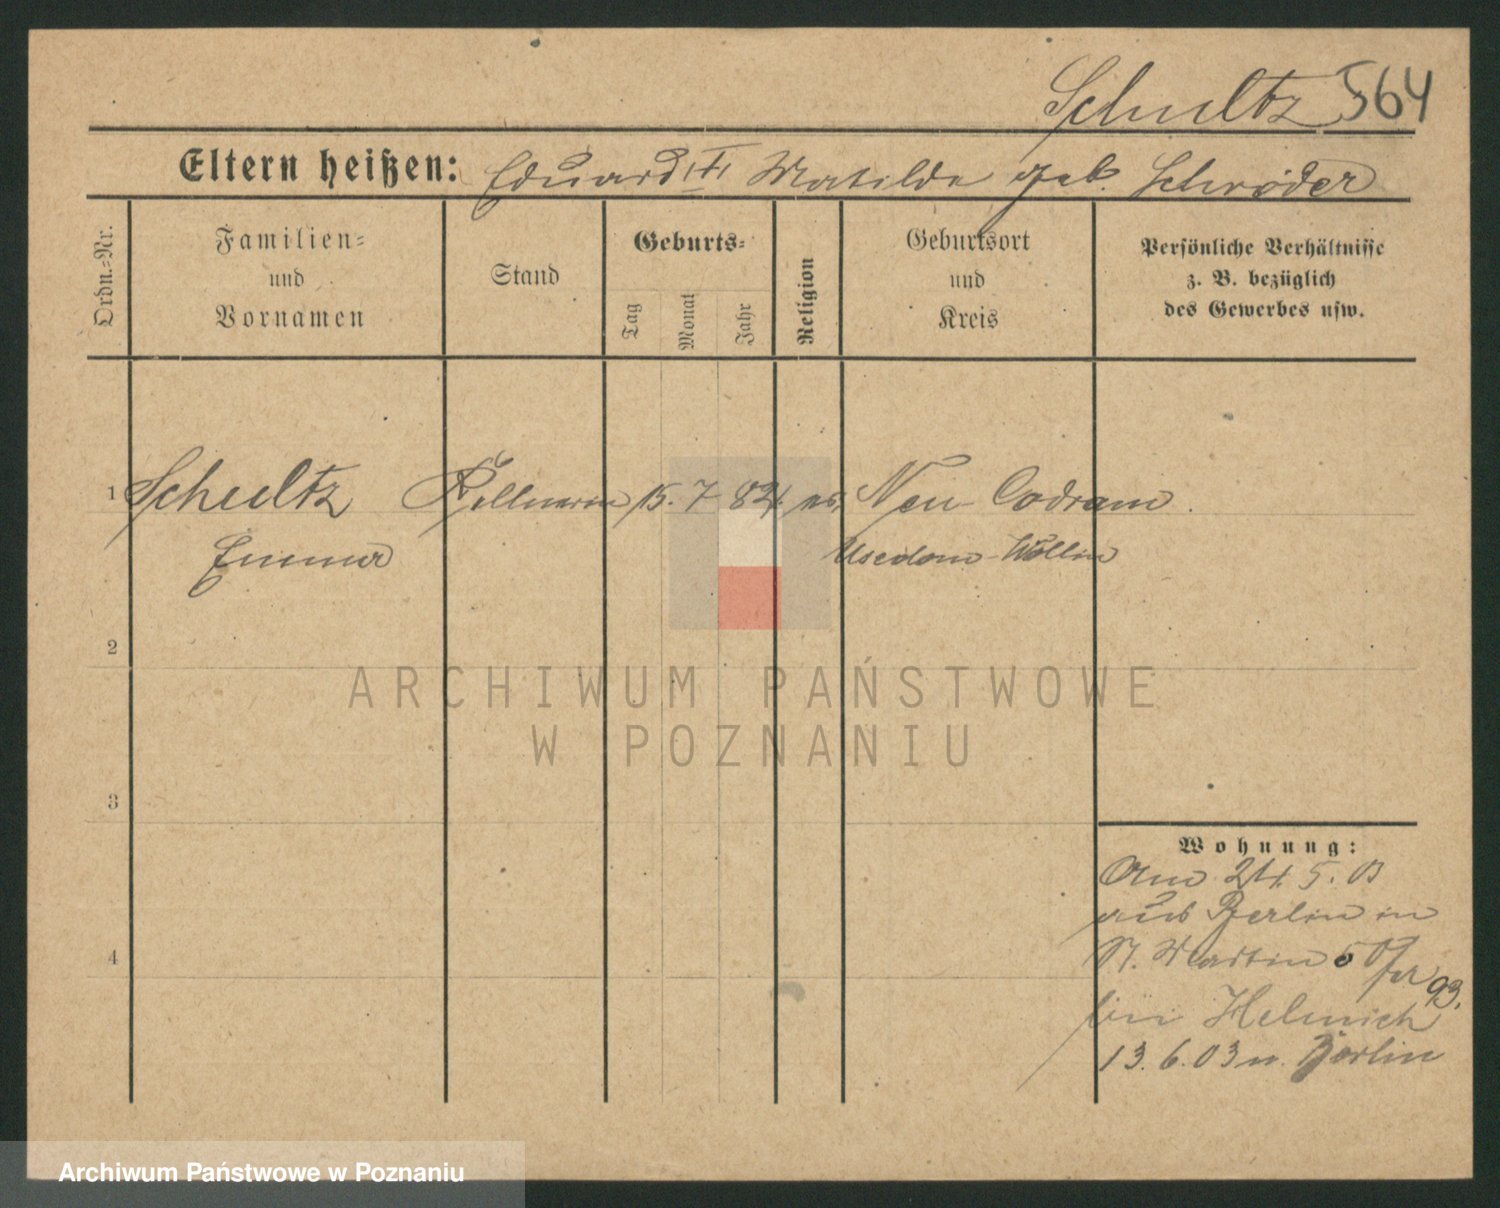 Schultz 564
Eltern heißen: Eduard u. Matilde geb. Schröder
Ordn.-Nr.
Familien-
und
Vornamen
Stand
Geburts-
Tag
Monat
Jahr
Religion
Geburtsort
und
Kreis
Persönliche Verhältnisse
z. B. bezüglich
des Gewerbes usw.
1 Schultz Kellnerin 15. 7 82. ev. Neu-Codram
Emma Usedom-Wollin
2
ARCHIWUM PAŃSTWOWE
W POZNANIU
3
Wohnung:
Am 24. 5. 03
aus Berlin in
St. Martin
4
bei Helmich
13. 6. 03 n. Berlin
Archiwum Państwowe w Poznaniu